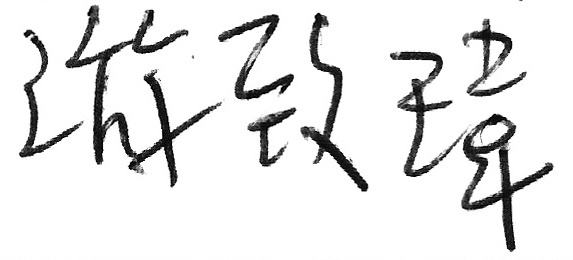 游致瑋